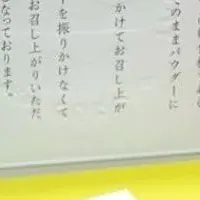 のままパウダーに
かけてお召し上が
ーを振りかけなくて
お召し上がりいただ
なっております。